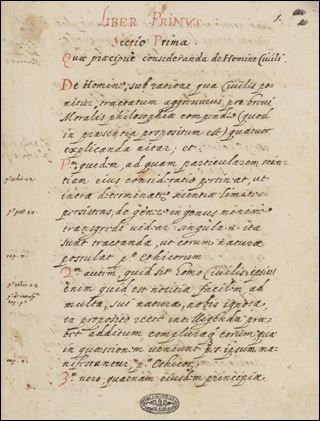 LIBER PRIMUS
1.
Sectio Prima
Quæ præcipue consideranda de Homine Civili.
De Homine, sub ratione, qua Civilis po
nitur, tractatum aggressurus, pro brevi
Moralis philosophiæ compendio (quod
in præsentia propositum est) quatuor
explicanda nitar; et
quidem, ad quam particularem scien
tiam eius consideratio pertineat, ut
intra determinatos scientiæ limites
persistens, de genere in genus minime
transgredi videar. singula n. ita
sunt tractanda, ut eorum natura
postulat p.º ethicorum
2.m autem, quid sit Homo Civilis; ipsius
enim quid est notitia facilem ad
multa, suæ naturæ, nobis ignota,
in proposito recte intelligenda præ
bet additum compluraq; eorum, quæ
in quæstionem veniunt p. ipsum ma
nifestantur, p.º Ethicor.
3.m vero, quænam eiusdem principia